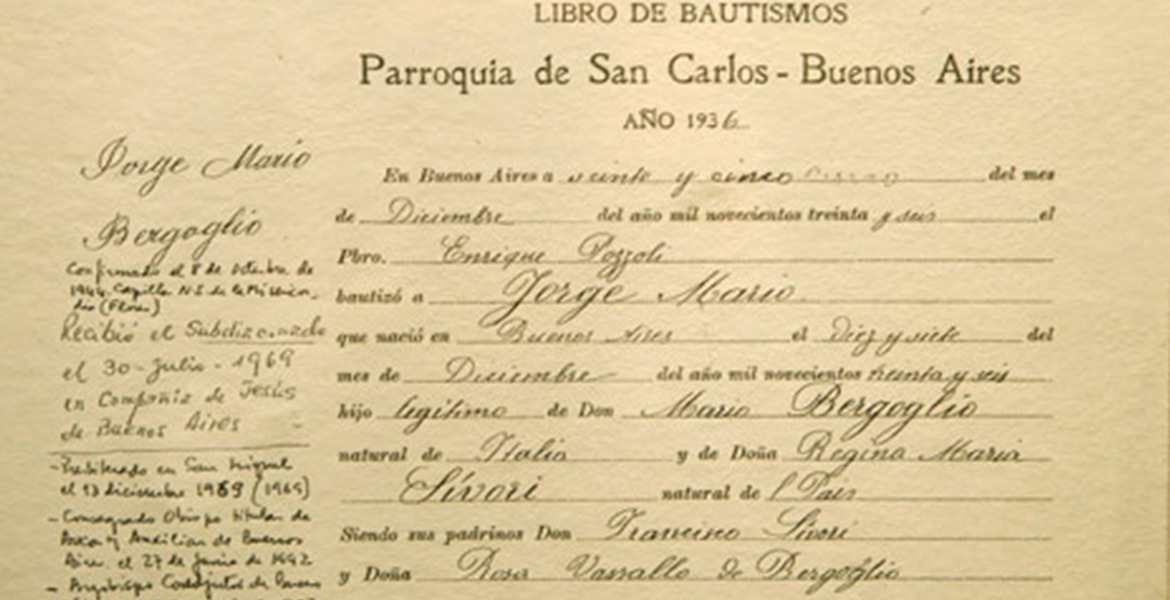 LIBRO DE BAUTISMOS
Parroquia de San Carlos - Buenos Aires
AÑO 1936
Jorge Mario
Bergoglio
Confirmado el 8 de Octubre de
1944 Capilla N.S. de la Misericor-
dia (Flores)
Recibió el Subdiaconado
el 30-Julio-1969
en Compañia de Jesús
de Buenos Aires
- Presbiterado en San Miguel
el 13 diciembre 1969 (1969)
- Consagrado Obispo titular de
Auca y Auxiliar de Buenos
Aires el 27 de Junio de 1992
- Arzobispo Coadjutor de Buenos
En Buenos Aires a veinte y cinco del mes
de Diciembre del año mil novecientos treinta y seis el
Pbro. Enrique Pozzoli
bautizó a Jorge Mario
que nació en Buenos Aires el diez y siete del
mes de Diciembre del año mil novecientos treinta y seis
hijo legítimo de Don Mario Bergoglio
natural de Italia y de Doña Regina Maria
Sívori natural de l Pais
Siendo sus padrinos Don Francisco Sívori
y Doña Rosa Vassallo de Bergoglio